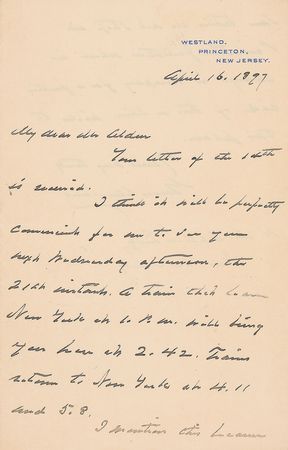 WESTLAND,
PRINCETON,
NEW JERSEY.
April 16. 1897
My dear Mr Alden
Your letter of the 14th
is received.
I think it will be perfectly
convenient for me to see you
next Wednesday afternoon, the
21st instant. A train that leaves
New York at 1. P. M. will bring
you here at 2.42. Trains
return to New York at 4.11
and 5.8.
I mention this because